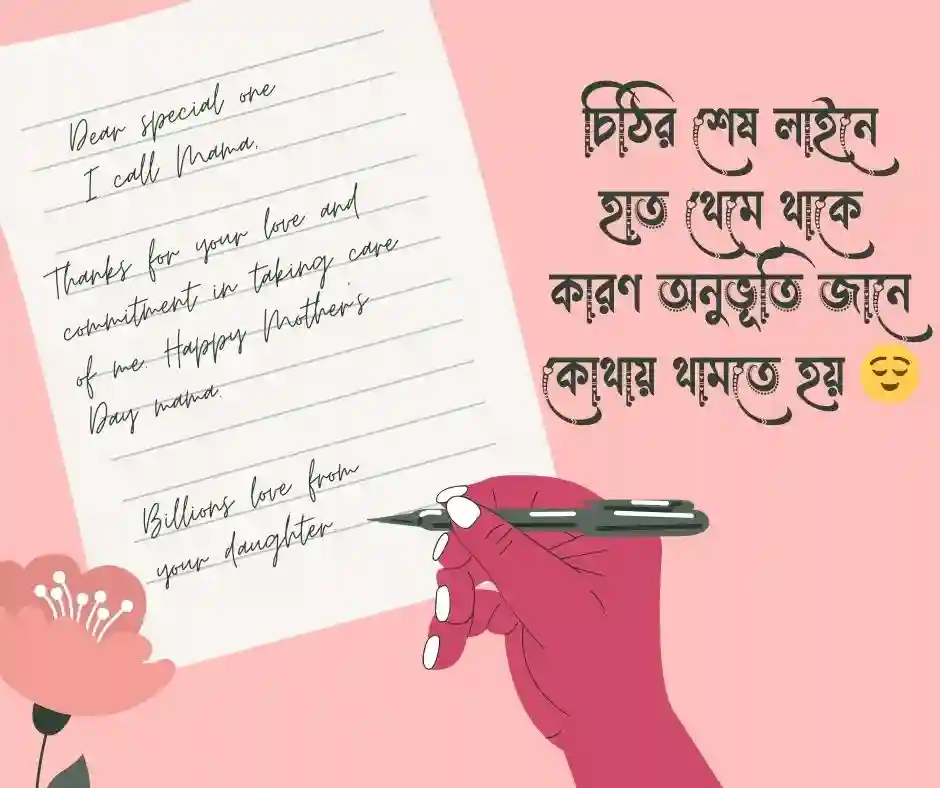 Dear special one
I call Mama,
Thanks for your love and
commitment in taking care
of me. Happy Mother's
Day mama.
Billions love from
your daughter
চিঠির শেষ লাইনে
হাত থেমে থাকে
কারণ অনুভূতি জানে
কোথায় থামতে হয় 😌